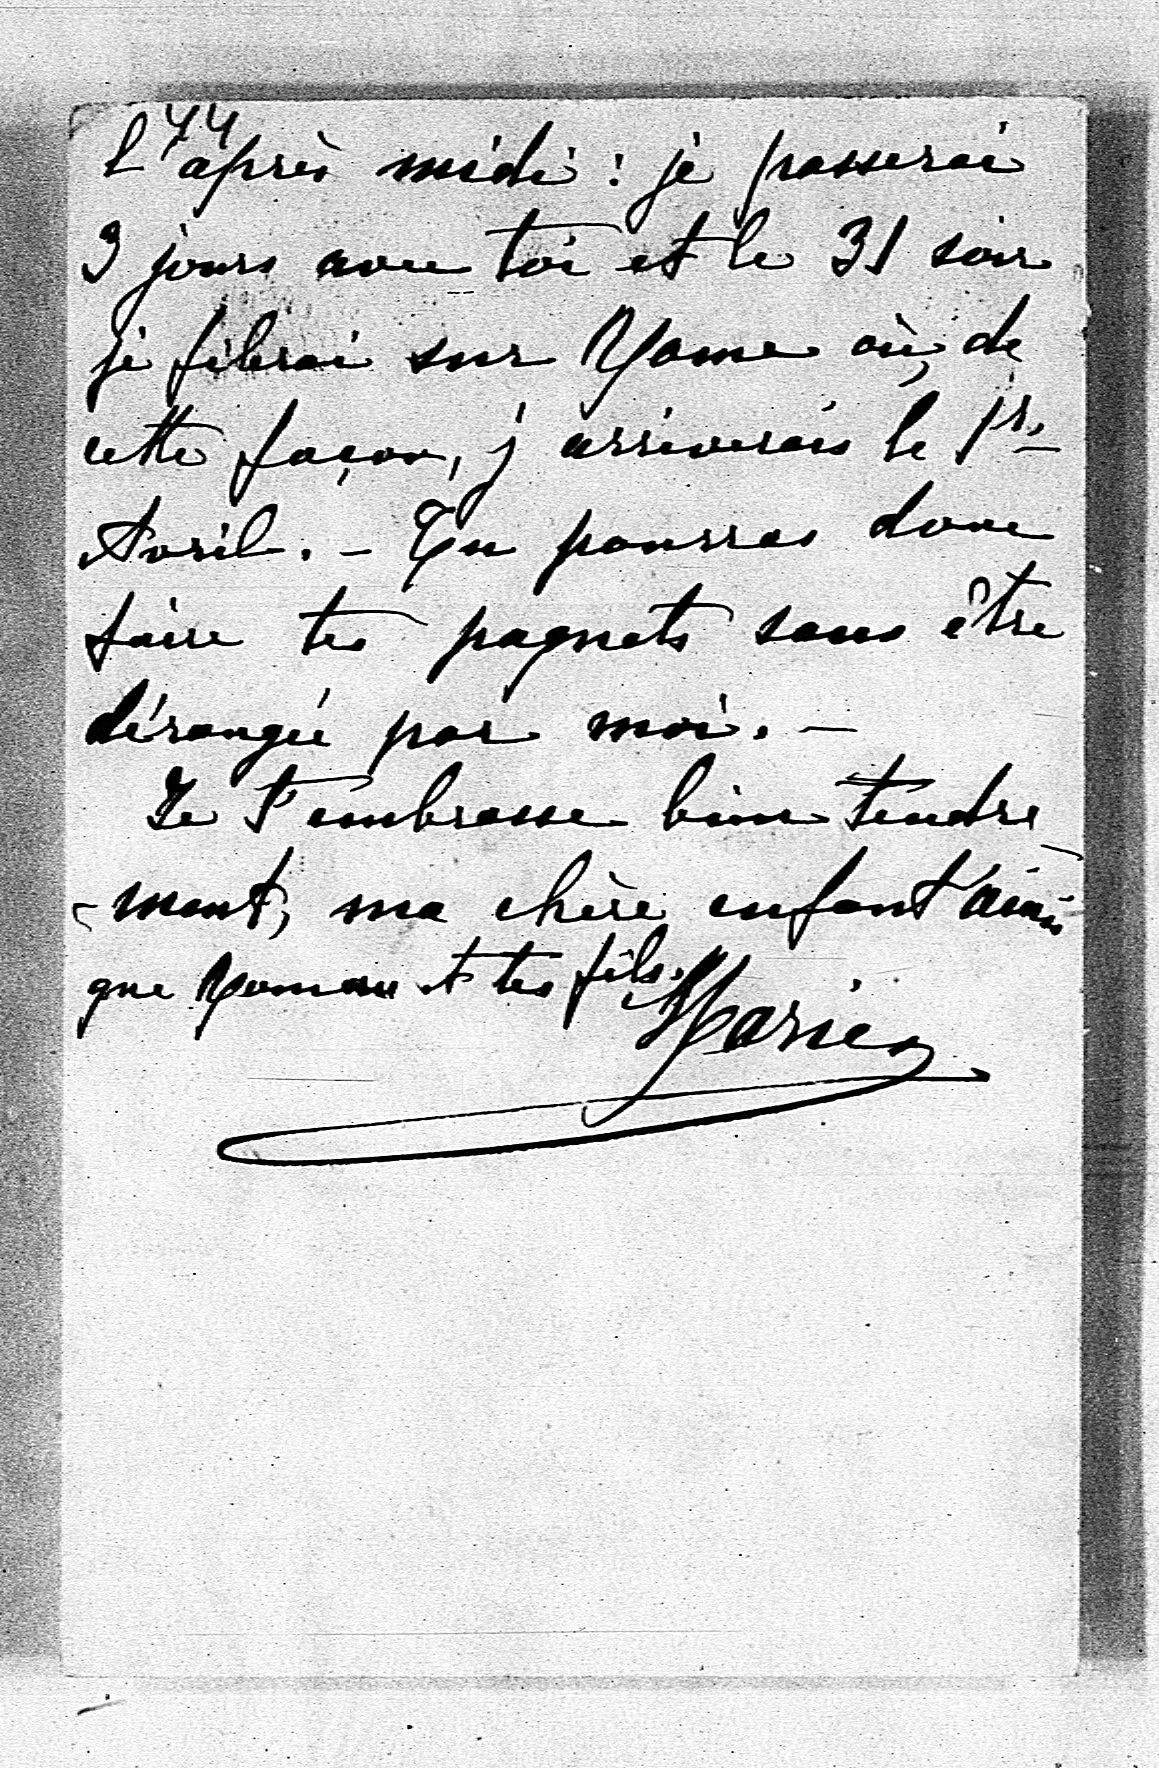 44
L'après midi : je passerai
3 jours avec toi et le 31 soir
je filerai sur Rome où, de
cette façon, j'arriverais le 1er
Avril. - Tu pourras donc
faire tes paquets sans être
dérangée par moi. -
Je t'embrasse bien tendre
- ment, ma chère enfant ainsi
que et tes fils.
Marie